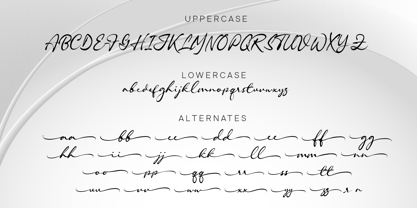 UPPERCASE
ABCDEFGHIJKLMNOPQRSTUVWXYZ
LOWERCASE
abcdefghijklmnopqrstuvwxyz
ALTERNATES
aa bb cc dd ee ff gg
hh ii jj kk ll mm nn
oo pp qq rr ss tt
uu vv ww xx yy zz